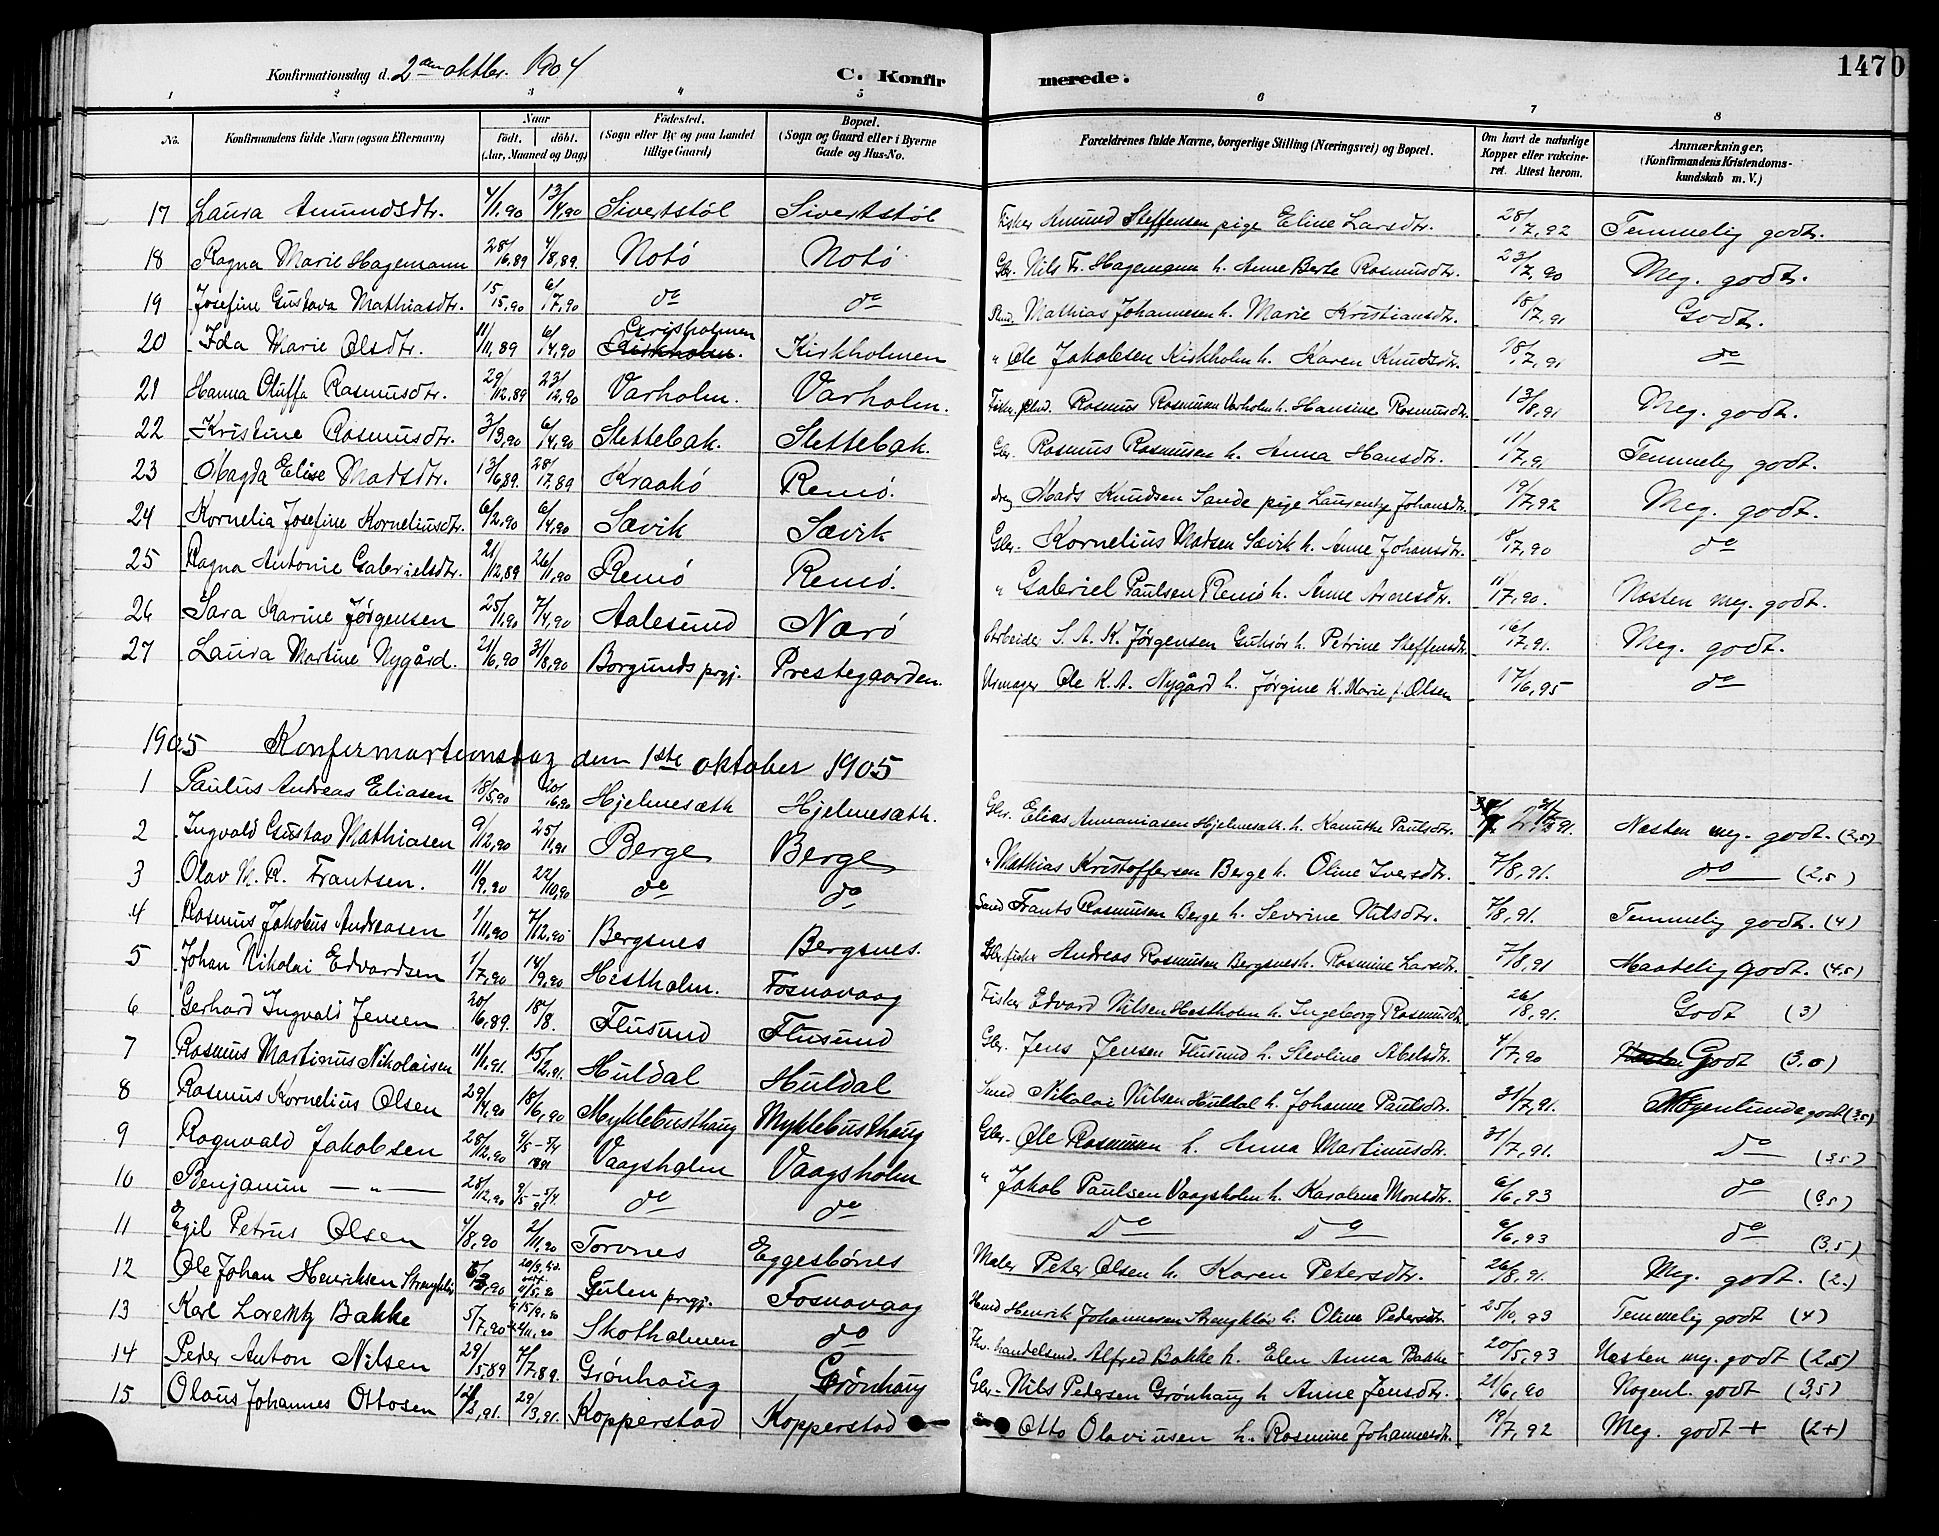 Konfirmationsdag d. 2den oktbr. 1904 C. Konfirmerede. 1470
1 2 3 4 5 6 7 8
No. Konfirmandens fulde Navn (ogsaa Efternavn) Naar født. døbt. (Aar, Maaned og Dag) Fødested. (Sogn eller By og paa Landet tillige Gaard) Bopæl. (Sogn og Gaard eller i Byerne Gade og Hus-No. Forældrenes fulde Navne, borgerlige Stilling (Næringsvei) og Bopæl. Om havt de naturlige Kopper eller vakcineret. Attest herom. Anmærkninger. (Konfirmandens Kristendomskundskab m. V.)
17 Laura Amundsdtr. 4/1.90 13/4.90 Sivertstøl Sivertstøl Fisker Amund Steffensen pige Eline Larsdtr. 28/7.92 Temmelig godt.
18 Ragna Marie Hagemann 28/6.89 4/8.89. Notø Notø Gbr. Nils Fr. Hagemann h. Anne Berte Rasmusdtr. 23/7.90 Meg. godt.
19 Josefine Gustava Mathiasdtr. 15/5.90 6/7.90 do do Mathias Johannesen h. Marie Kristiansdtr. 18/7.91 Godt.
20 Ida Marie Olsdtr. 11/11.89 6/4.90 Grisholmen Kirkholm. Kirkholmen " Ole Jakobsen Kirkholm h. Karen Knudsdtr. 18/7.91 do
21 Hanna Oluffa Rasmusdtr. 29/12.89 23/2.90 Varholm. Varholm. Rasmus Rasmussen Varholm h. Hansine Rasmusdtr. 13/8.91 Meg. godt.
22 Kristine Rasmusdtr. 3/3.90 6/4.90 Slettebak. Slettebak. Gbr. Rasmus Rasmusen h. Anna Hansdtr. 11/7.9 Temmelig godt.
23 Magda Elise Madsdtr. 13/6.89. 28/7.89 Kraakø Remø. Mads Knudsen Sande pige Laurentze Johansdtr. 19/7.92 Meg. godt.
24 Kornelia Josefine Korneliusdtr. 6/2.90 6/4.90 Sævik Sævik Gbr. Kornelius Madsen Sævik h. Anne Johansdtr. 8/7.90 do
25 Ragna Antonie Gabrielsdtr. 21/12.89 26/1.90 Remø Remø. " Gabriel Paulsen Remø h. Anne Arnesdtr. 11/7.90. Næsten meg. godt.
26 Sara Karine Jørgensen 25/1.90 7/4.90 Aalesund Nærø Arbeider S. A. K. Jørgensen h. Petrine Steffensdtr. 16/7.91. Meg. godt.
27 Laura Martine Nygård. 21/6.90 31/8.90 Borgunds prgj. Prestegaarden. Urmager Ole K. A. Nygård h. Jørgine K. Marie f. Olsen 17/6.95 do
1905 Konfirmartionsdag den 1ste oktober 1905
1 Paulus Andreas Eliasen 18/5.90 20/6.90 Hjelmesæth Hjelmesæth. Gbr. Elias Annaniasen Hjelmesæth h. Knuthe Paulsdtr. Næsten meg. godt. (2,5)
2 Ingvald Gustav Mathiasen 9/12.90 25/1.91 Berge Berge " Mathias Kristoffersen Berge h. Oline Iversdtr. 7/8.91. do (2,5)
3 Olav M. R. Frantsen. 11/9.90 22/10.90 do do Smed Frants Rasmusen Berge h. Sevrine Nilsdtr. 7/8.91. Temmelig godt. (4)
4 Rasmus Jakobus Andreasen 1/11.90 7/12.90 Bergsnes Bergsnes. Gbr. fisker Andreas Rasmusen Bergsnes h. Rasmine Larsdtr. 7/8.91 Maatelig godt. (4,5)
5 Johan Nikolai Edvardsen 1/7.90 14/9.90 Hestholm. Fosnavaag Fisker Edvard Nilsen Hestholm h. Ingeborg Rasmusdtr. 26/8.91. Godt (3)
6 Gerhard Ingvald Jensen 20/6.89. 18/8. Flusund Flusund Gbr. Jens Jensen Flusund h. Sterline Abelsdtr. 4/7.90 Godt (3,0)
7 Rasmus Martinus Nikolaisen 11/1.91. 15/2.91. Huldal Huldal Smed Nikolai Nilsen Huldal h. Johanne Paulsdtr. 31/7.91. Nogenlunde godt (3,5)
8 Rasmus Kornelius Olsen 29/4.90 18/6.90 Myklebusthaug Myklebusthaug Gbr. Ole Rasmusen h. Anna Martinusdtr. 31/7.91. Do (3,5)
9 Ragnvald Jakobsen 28/12.90 9/5 - 5/4 1891 Vaagsholm Vaagsholm " Jakob Paulsen Vaagsholm h. Karolene Monsdtr. 6/6.93 do (3,5)
10 Benjamin — " — 28/12.90 9/5 - 5/4 91 do do Do Do 6/6.93 do (3,5)
11 Egil Petrus Olsen 4/8.90 2/11.90 Torvnes Eggesbønes Maler Peter Olsen h. Karen Petersdtr. 26/8.91. Meg. godt. (2.)
12 Ole Johan Henriksen Strengklei Gulen prgj. Fosnavaag Henrik Johannesen h. Oline Pedersdtr. 25/10.93 Temmelig godt (4)
13 Karl Lorentz Bakke 5/7.90 Skotholmen do Alfred Bakke h. Elen Anna Bakke 20/5.93 Næsten meg. godt (2,5)
14 Peder Anton Nilsen 29/5.89 7/7.89. Grønhaug Grønhaug Gbr. Nils Pedersen Grønhaug h. Anne Jensdtr. 21/6.90 Nogenl. godt (3,5)
15 Olaus Johannes Ottosen 29/3.91. Kopperstad Kopperstad " Otto Olaviusen h. Rasmine Johannesdtr. 19/7.92 Meg. godt + (2+)